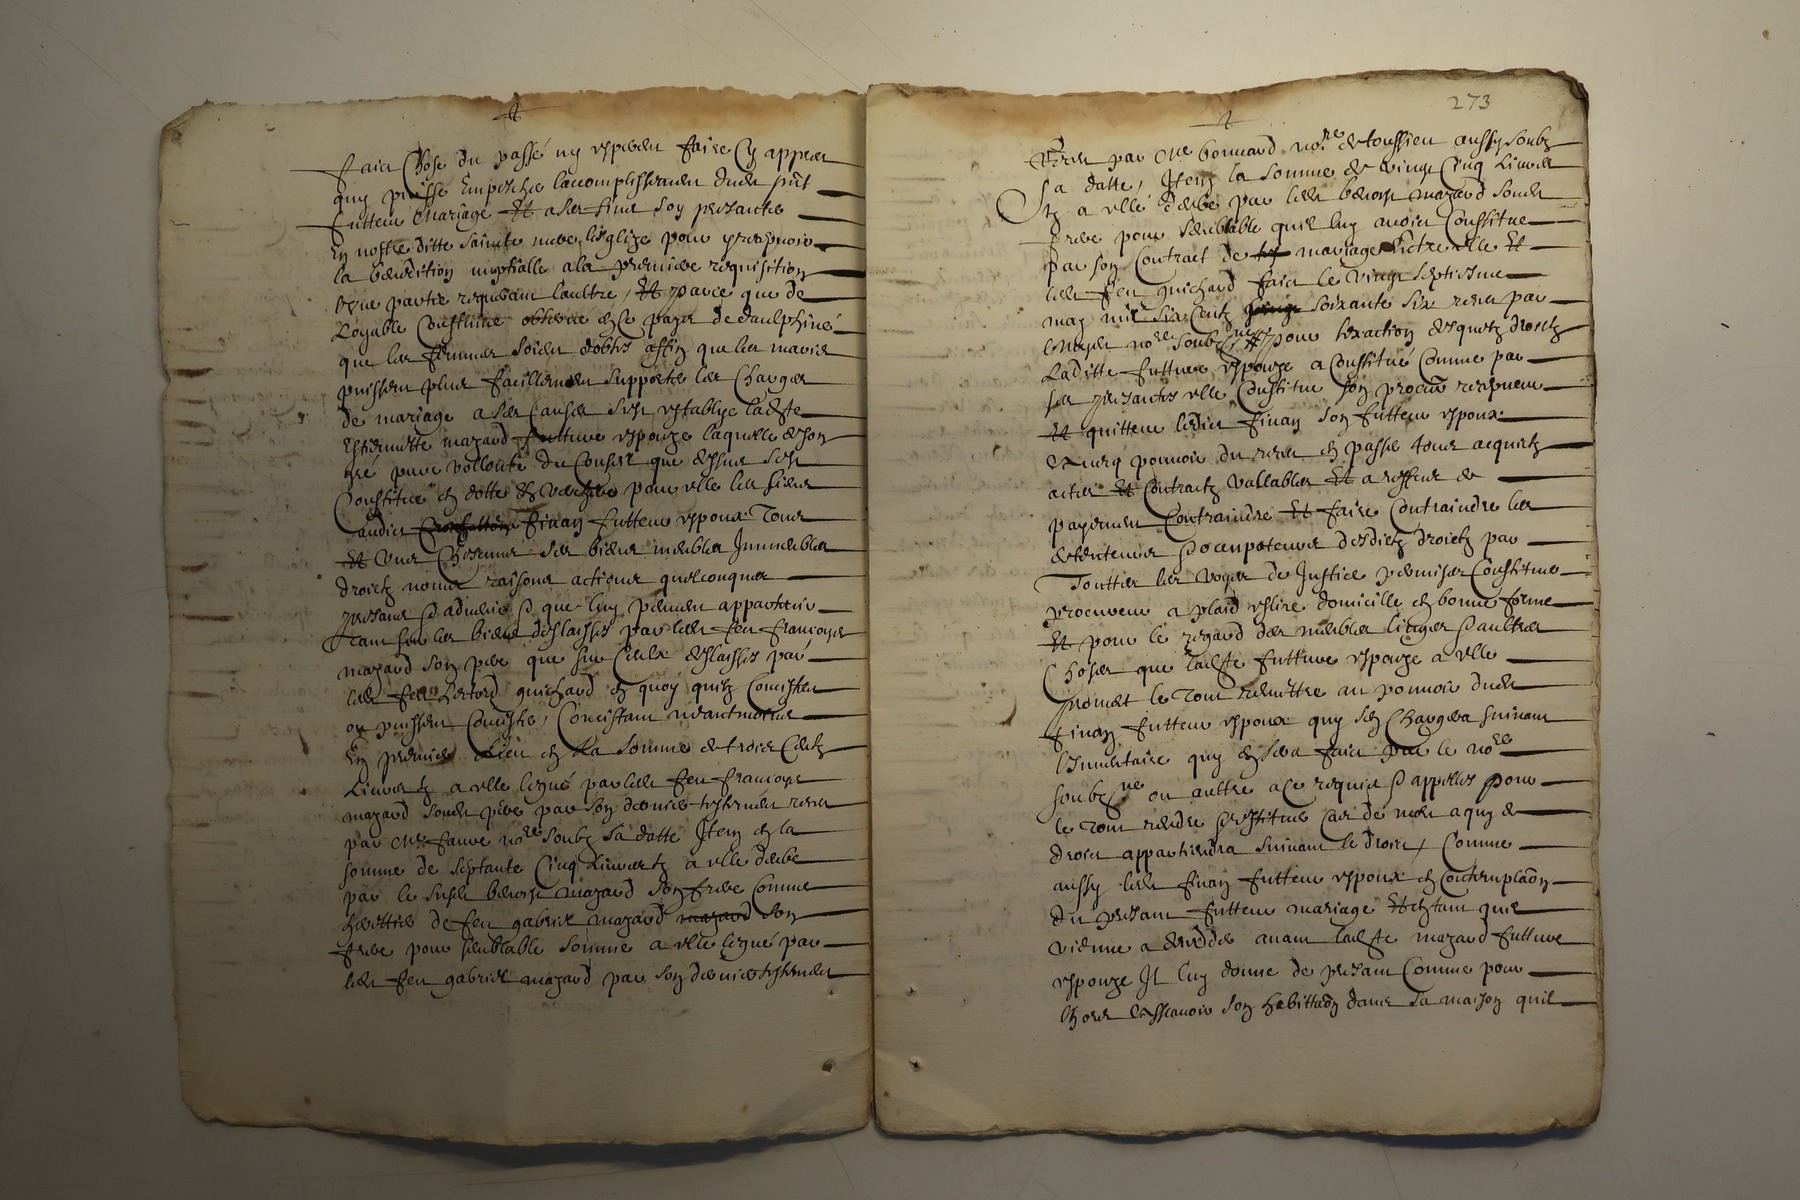 faict Chose du passé ny espoeren faire Cy appres
quy puisse Empescher lacomplissement dudit put
futteur Mariage Et a ses fins soy presanter
En nostreditte sainte mere lesglize pour y recepvoir
la benedition nuptialle a la premiere requisition
Lune partie requerant laultre, Et parce que de
Loyable Coustume observé en Ce payx de daulphiné
que les femmes soient dottés affin que les maris
puissent plus facillement supporter les Charges
de mariage a Ces Causes sest establye ladite
Estiennette mazard futture espouze laquelle de son
gré pure vollonté du Conseil que dessus sest
Constitué en dotte Et verchere pour elle les siens
audict finay futteur espoux Tous
Et Uns Chescuns ses biens meubles Immeubles
droictz noms raisons actions quelconques
presans & advenir & que luy peuvent appartenir
tant sur les biens deslaissés par ledit feu françoys
mazard son pere que sur Ceulx deslaissés par
ledit feu guichard en quoy quilz Concistent
ou puissent Concister, Concistant neantmoins
En premier Lieu en La somme de trois Centz
Livres tz a elle legué par ledit feu françoys
mazard sondit pere par son dernier testement receu
par Me faure nore soubz sa datte Item en la
somme de septante Cinq Livres tz a elle deube
par le susdit benoist mazard son frere Comme
herittier de feu gabriel mazard mazard son
frere pour semblable somme a elle legué par
ledit feu gabriel mazard par son dernier testement
273
Receu par Me bonnard nore de toussieu aussy soubz
sa datte, Item la somme de vingt Cinq Livres
tz a elle deube par ledit benoist mazard sondit
frere pour semblable quil luy avoit Constitué
par son Contract de mariage dictre elle Et
ledit feu guichard faict le vingt septiesme
may mil six Centz soixante six receu par
nore soubzne pour lexaction desquelz droictz
Laditte futture espouze a Constitué Comme par
ses presantes elle Constitue son procur recepveur
Et quitteur ledict finay son futteur espoux
avecq pouvoir du receu en passer tous acquitz
actes Et Contractz vallables Et a reffus de
payement Contraindre Et faire Contraindre les
detenteurs & occupateurs desdictz droictz par
Touttes les voyes de Justice permises Constituer
procureur a plaid eslire domicille en bonne forme
Et pour le regard des meubles linges & aultres
Choses que ladite futture espouze a elle
promet le tout remettre au pouvoir dudit
finay futteur espoux quy sen Chargera suivant
linventaire quy en sera faict par le nore
soubzne ou aultre a Ce requis & appellés Pour
le tout rendre & restituer Cas de mort a quy de
droict appartiendra suivant le droict, Comme
aussy ledit finay futteur espoux en Contemplaon
du presant futteur mariage Et en tant quil
vienne a deceder avant ladite mazard futture
espouze Il luy donne de presant Comme pour
lhors Assavoir son habittaon dans sa maison quil